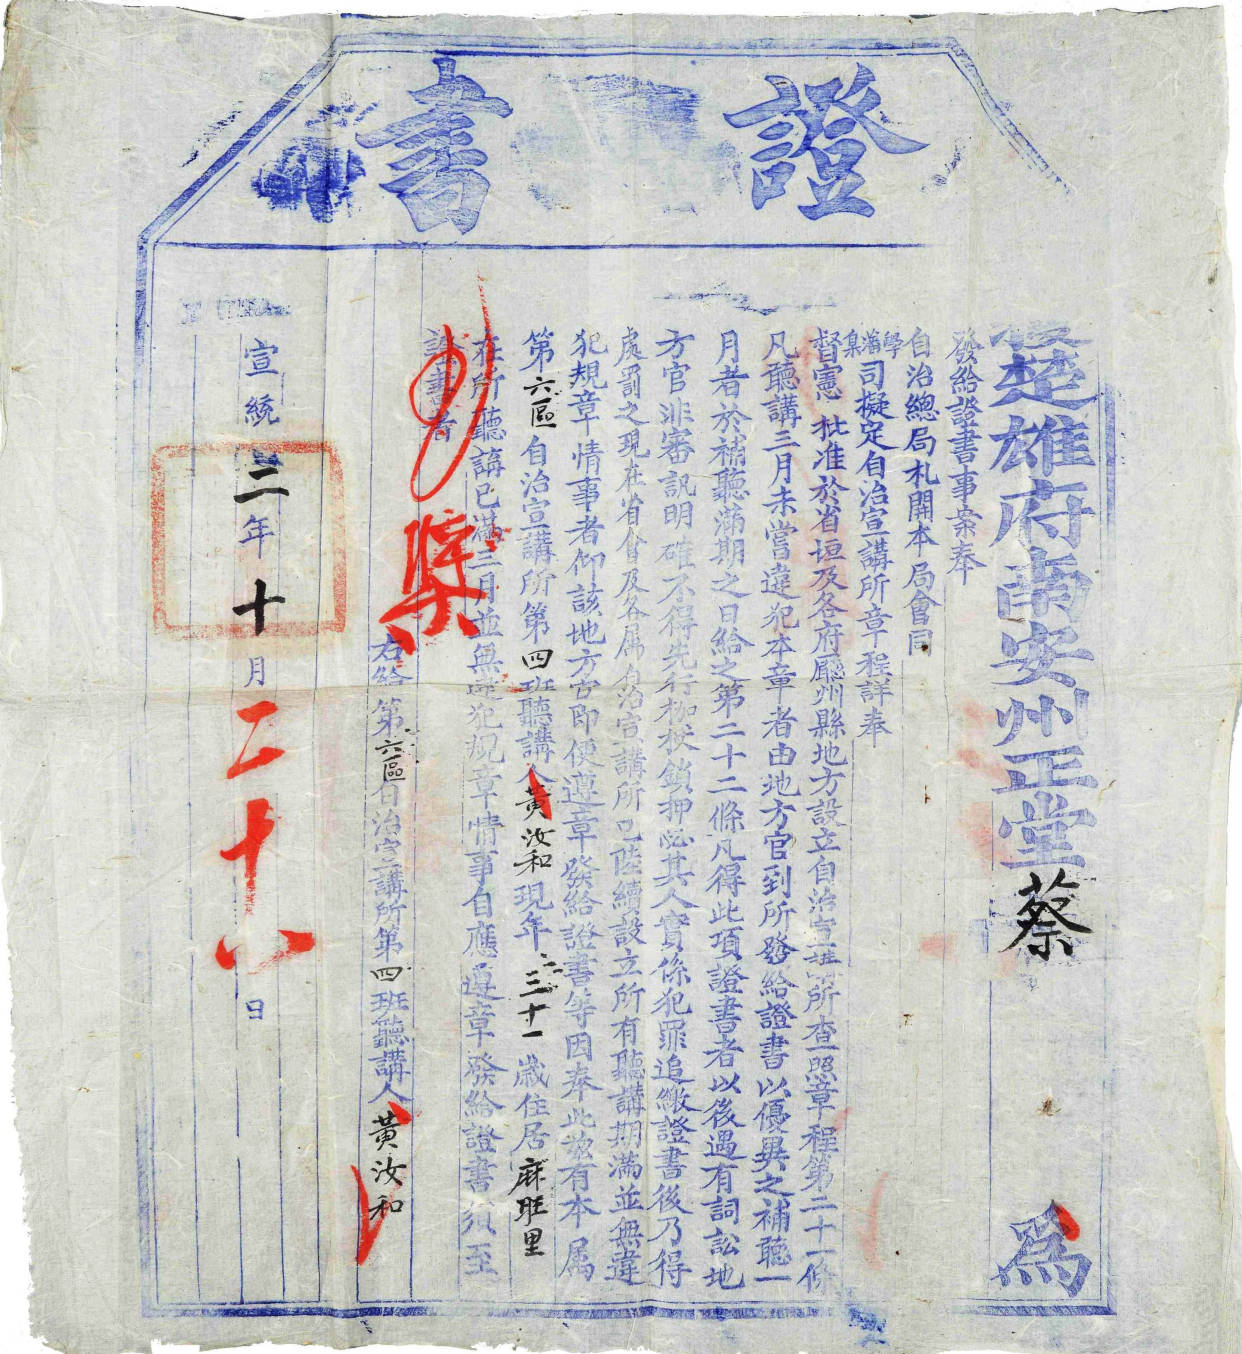 證書
楚雄府南安州正堂蔡 爲
發給證書事案奉
自治總局札開本局會同
學藩臬司擬定自治宣講所章程詳奉
督憲批准於省垣及各府廳州縣地方設立自治宣講所查照章程第二十一條
凡聽講三月未嘗違犯本章者由地方官到所發給證書以優異之補聽一
月者於補聽滿期之日給之第二十二條凡得此項證書者以後遇有詞訟地
方官非審訊明確不得先行枷杖鎖押必其人實係犯罪追繳證書後乃得
處罰之現在省會及各属自治宣講所已陸續設立所有聽講期滿並無違
犯規章情事者仰該地方官即便遵章發給證書等因奉此茲有本属
第六區自治宣講所第四班聽講人黃汝和現年三十一歲住居麻旺里
在所聽講已滿三月並無違犯規章情事自應遵章發給證書須至
證書者
右給第六區自治宣講所第四班聽講人黃汝和
宣統二年十月二十八日